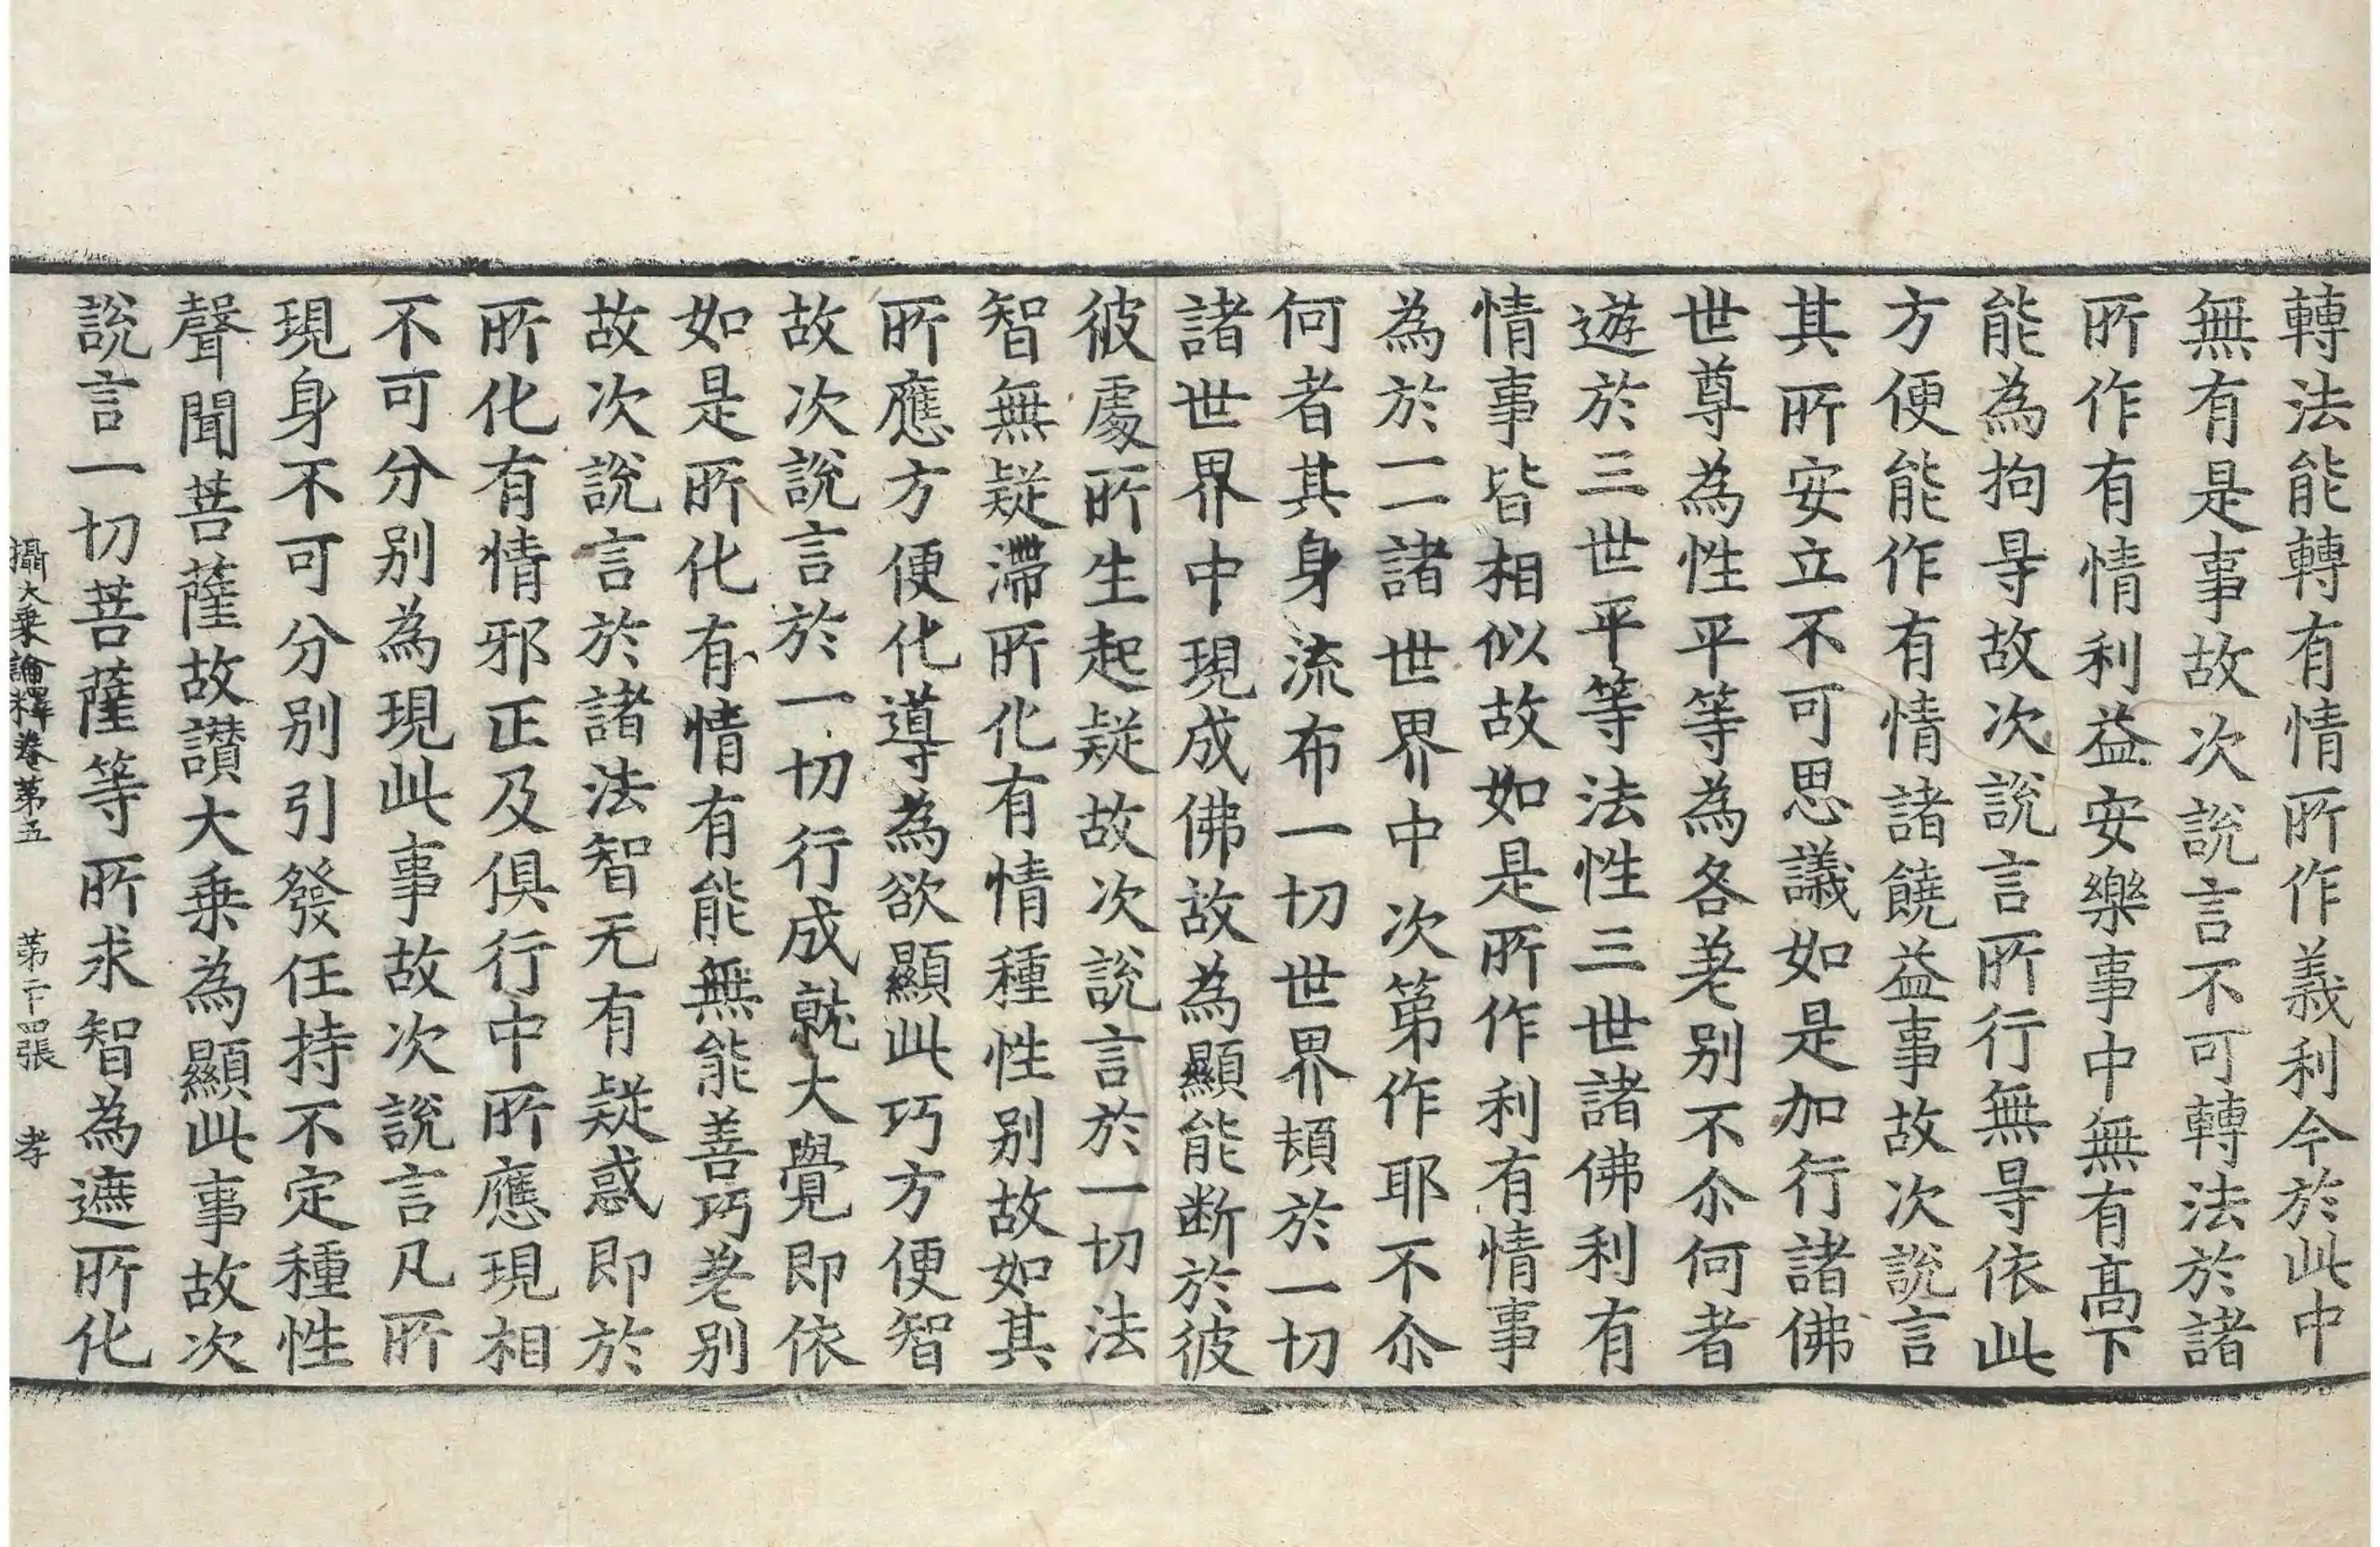 轉法能轉有情所作義利今於此中
無有是事故次說言不可轉法於諸
所作有情利益安樂事中無有髙下
能為拘㝵故次說言所行無㝵依此
方便能作有情諸饒益事故次說言
其所安立不可思議如是加行諸佛
世尊為性平等為各差別不尒何者
遊於三世平等法性三世諸佛利有
情事皆相似故如是所作利有情事
為於一一諸世界中次第作耶不尒
何者其身流布一切世界頓於一切
諸世界中現成佛故為顯能断於彼
彼處所生起疑故次說言於一切法
智無疑滯所化有情種性別故如其
所應方便化導為欲顯此巧方便智
故次說言於一切行成就大覺即依
如是所化有情有能無能善巧差別
故次說言於諸法智无有疑惑即於
所化有情邪正及俱行中所應現相
不可分別為現此事故次說言凡所
現身不可分別引發任持不定種性
聲聞菩薩故讚大乗為顯此事故次
說言一切菩薩等所求智為遮所化
攝大乗論釋卷第五　第二十四張　孝